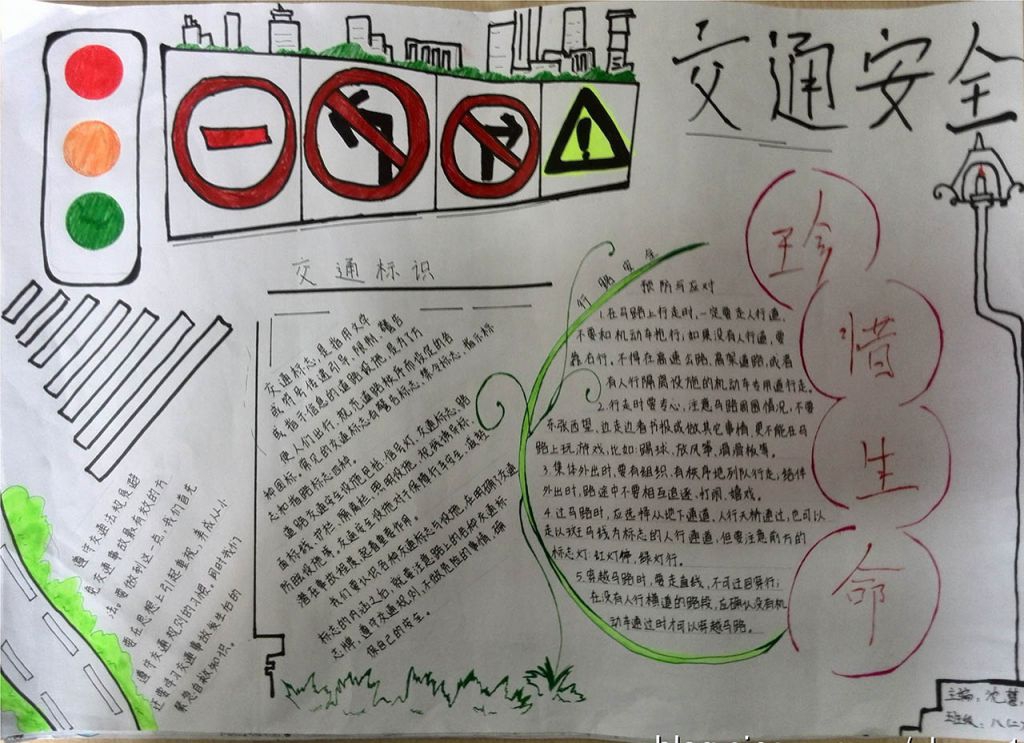 交通安全
珍惜生命
交通标识
交通标志，是指用文字
或符号传递引导、限制、警告
或指示信息的道路设施，是为了方
便人们出行，规范道路秩序而设定的各
种图标。常见的交通标志有警告标志、禁令标志、指示标
志和指路标志四种。
道路交通安全设施包括：信号灯、交通标志、路
面标线、护栏、隔离栏、照明设施、视线诱导标、
所眩设施等，交通安全设施对于保障行车安全、减轻
潜在事故程度起着重要作用。
我们要认识各种交通标志与设施，在明确了交通
标志的内涵之后，就要注意路上的各种交通标
志牌，遵守交通规则，不做危险的事情，确
保自己的安全。
遵守交通法规是避
免交通事故最有效的方
法。要做到这一点，我们首先
要在思想上引起重视，养成从小
遵守交通规则的习惯。同时我们
还要学习交通事故发生后的
紧急自救知识。
行路安全
预防与应对
1.在马路上行走时，一定要走人行道，
不要和机动车抢行；如果没有人行道，要
靠右行。不得在高速公路、高架道路，或者
有人行隔离设施的机动车专用道行走。
2.行走时要专心，注意马路周围情况，不要
东张西望、边走边看书报或做其它事情，更不能在马
路上玩游戏，比如：踢球、放风筝、滑滑板等。
3.集体外出时，要有组织、有秩序地列队行走；结伴
外出时，路途中不要相互追逐、打闹、嬉戏。
4.过马路时，应选择从地下通道、人行天桥通过，也可以
走从斑马线为标志的人行通道，但要注意前方的
标志灯：红灯停，绿灯行。
5.穿越马路时，要走直线，不可迂回穿行；
在没有人行横道的路段，应确认没有机
动车通过时才可以穿越马路。
主编：沈
班级：八(二)